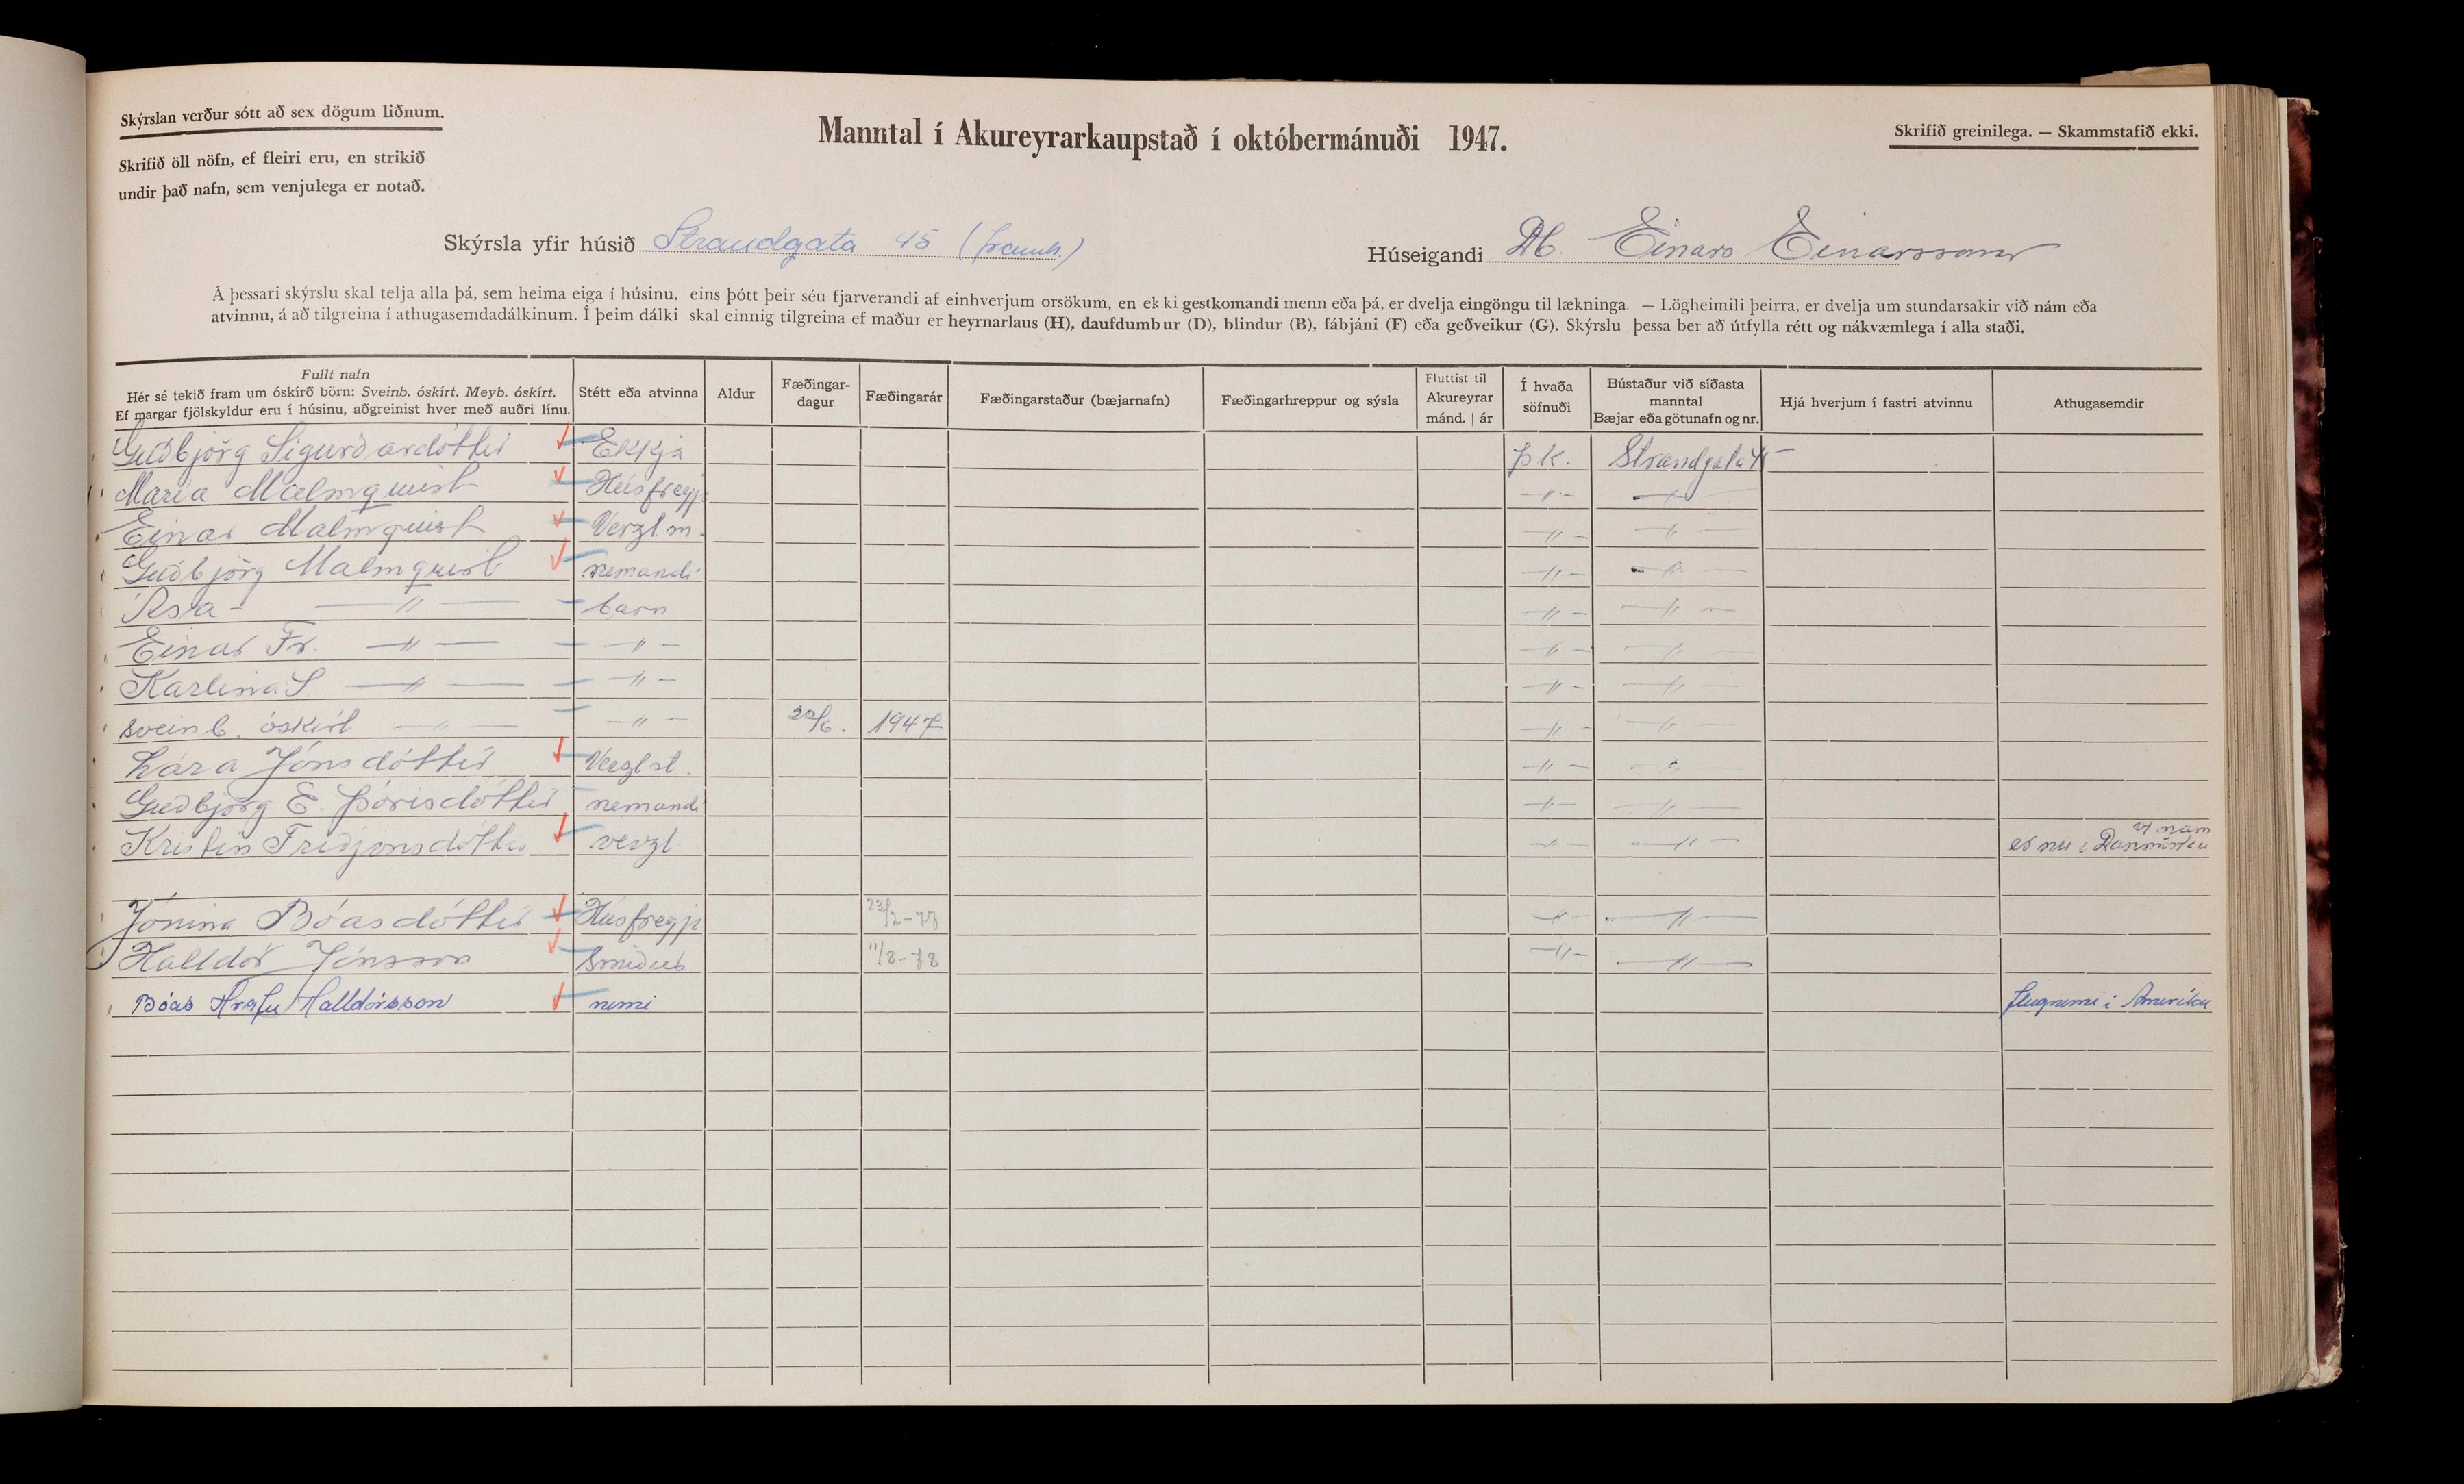 Skýrslan verður sótt að sex dögum liðnum.
Skrifið öll nöfn, ef fleiri eru, en strikið
undir það nafn, sem venjulega er notað.
Manntal í Akureyrarkaupstað í októbermánuði 1947.
Skrifið greinilega. — Skammstafið ekki.
Skýrsla yfir húsið Strandgata 45 (framh.)
Húseigandi Db. Einars Einarssonar
Á þessari skýrslu skal telja alla þá, sem heima eiga í húsinu, eins þótt þeir séu fjarverandi af einhverjum orsökum, en ekki gestkomandi menn eða þá, er dvelja eingöngu til lækninga. — Lögheimili þeirra, er dvelja um stundarsakir við nám eða
atvinnu, á að tilgreina í athugasemdadálkinum. Í þeim dálki skal einnig tilgreina ef maður er heyrnarlaus (H), daufdumbur (D), blindur (B), fábjáni (F) eða geðveikur (G). Skýrslu þessa ber að útfylla rétt og nákvæmlega í alla staði.
Fullt nafn
Hér sé tekið fram um óskírð börn: Sveinb. óskírt. Meyb. óskírt.
Ef margar fjölskyldur eru í húsinu, aðgreinist hver með auðri línu.
Stétt eða atvinna
Aldur
Fæðingar-
dagur
Fæðingarár
Fæðingarstaður (bæjarnafn)
Fæðingarhreppur og sýsla
Fluttist til
Akureyrar
mánd. | ár
Í hvaða
söfnuði
Bústaður við síðasta
manntal
Bæjar eða götunafn og nr.
Hjá hverjum í fastri atvinnu
Athugasemdir
Guðbjörg Sigurðardóttir Ekkja þk. Strandgata 45
María Malmquist Húsfreyja —〃— —〃—
Einar Malmquist Verzlm. —〃— —〃—
Guðbjörg Malmquist nemandi —〃— —〃—
Ása —〃— barn —〃— —〃—
Einar Fr. —〃— —〃— —〃— —〃—
Karlína S. —〃— —〃— —〃— —〃—
sveinb. óskírt —〃— —〃— 20/6. 1947 —〃— —〃—
Lára Jónsdóttir Verzlst. —〃— —〃—
Guðbjörg E. Þórisdóttir nemandi —〃— —〃—
Kristín Friðjónsdóttir verzl. —〃— —〃— er nú í Danmörku
Jónína Bóasdóttir Húsfreyja 23/2-77 —〃— —〃—
Halldór Jónsson Smiður 11/8-78 —〃— —〃—
Bóas Hrafn Halldórsson nemi flugnemi í Ameríku